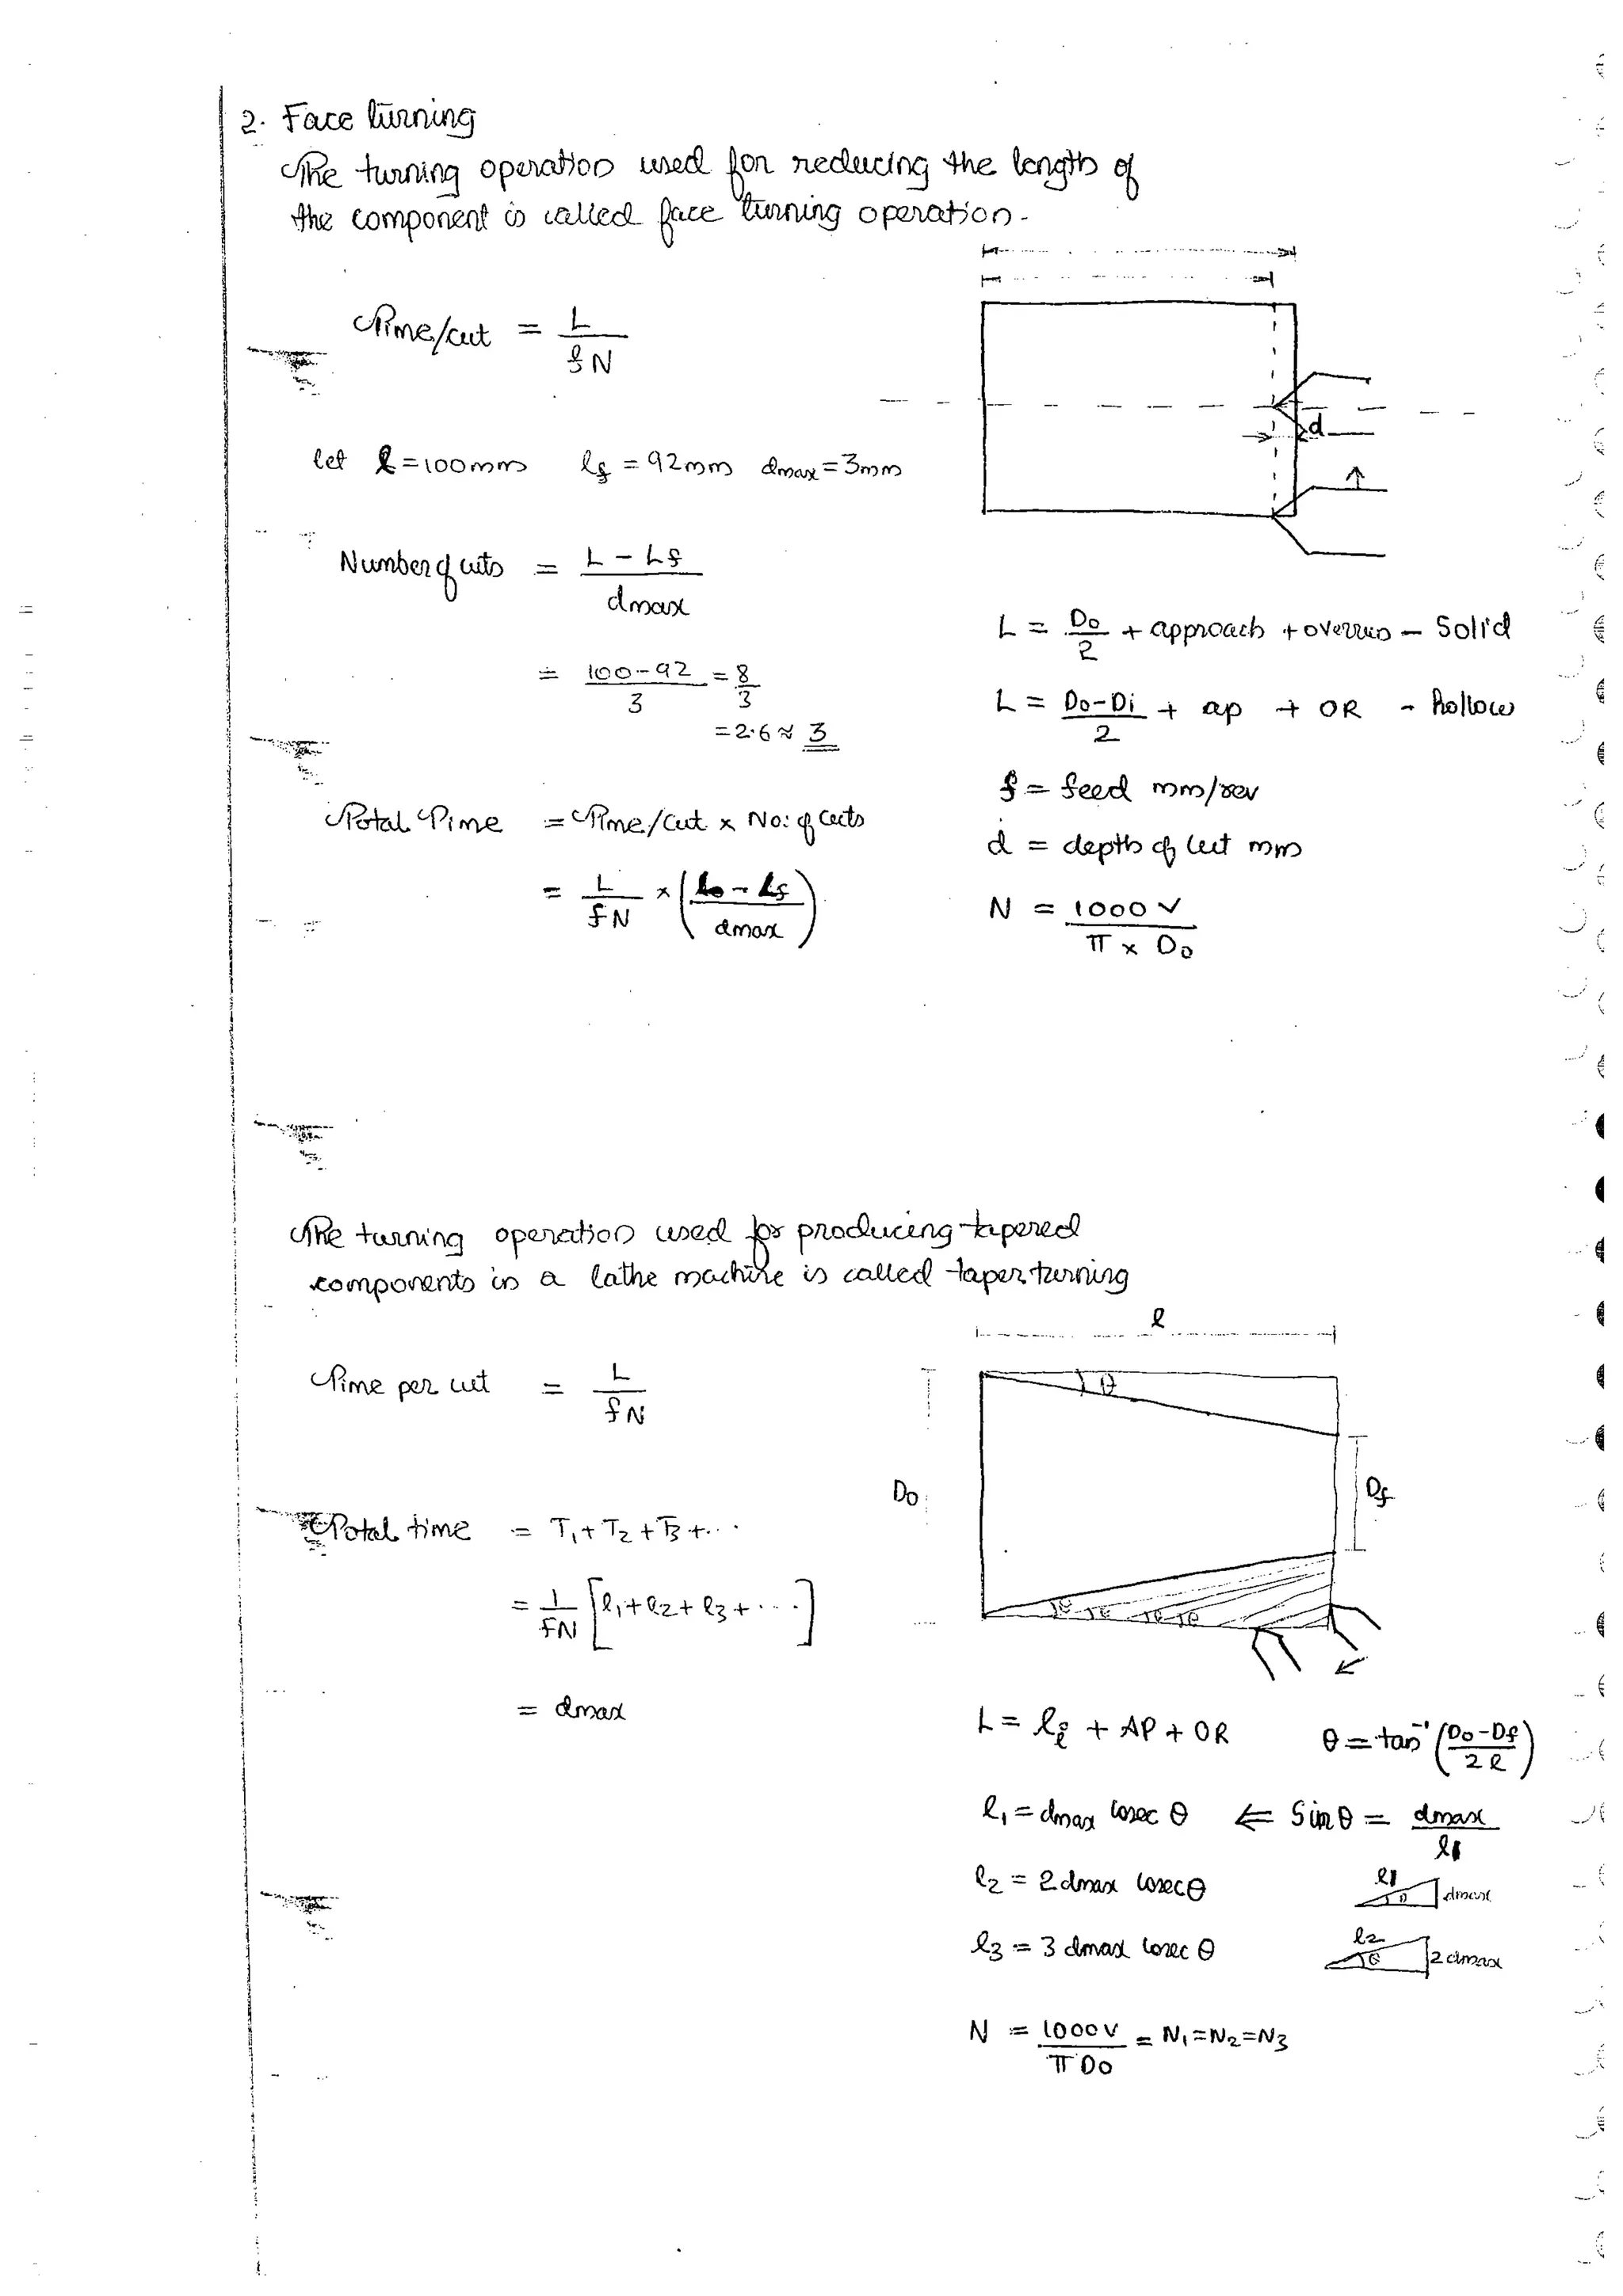 2. Face turning
The turning operation used for reducing the length of
the component is called face turning operation.
Time/cut = L / fN
d
let l = 100mm lf = 92mm dmax = 3mm
Number of cuts = L - Lf / dmax
= 100-92 / 3 = 8/3
= 2.6 ≈ 3
Total Time = Time/cut x No: of cuts
= L / fN x (lo - lf / dmax)
L = Do/2 + approach + overrun - Solid
L = Do-Di / 2 + ap + OR - hollow
f = feed mm/rev
d = depth of cut mm
N = 1000 V / π x Do
The turning operation used for producing tapered
components in a lathe machine is called taper turning
l
Time per cut = L / fN
θ
Do
Df
Total time = T1 + T2 + T3 + ...
= 1 / fN [l1 + l2 + l3 + ....]
= dmax
L = li + AP + OR θ = tan⁻¹ (Do-Df / 2l)
l1 = dmax cosec θ ⇐ Sin θ = dmax / l1
l2 = 2dmax cosec θ
l1 θ dmax
l3 = 3 dmax cosec θ
l2 θ 2dmax
N = 1000V / π Do = N1 = N2 = N3